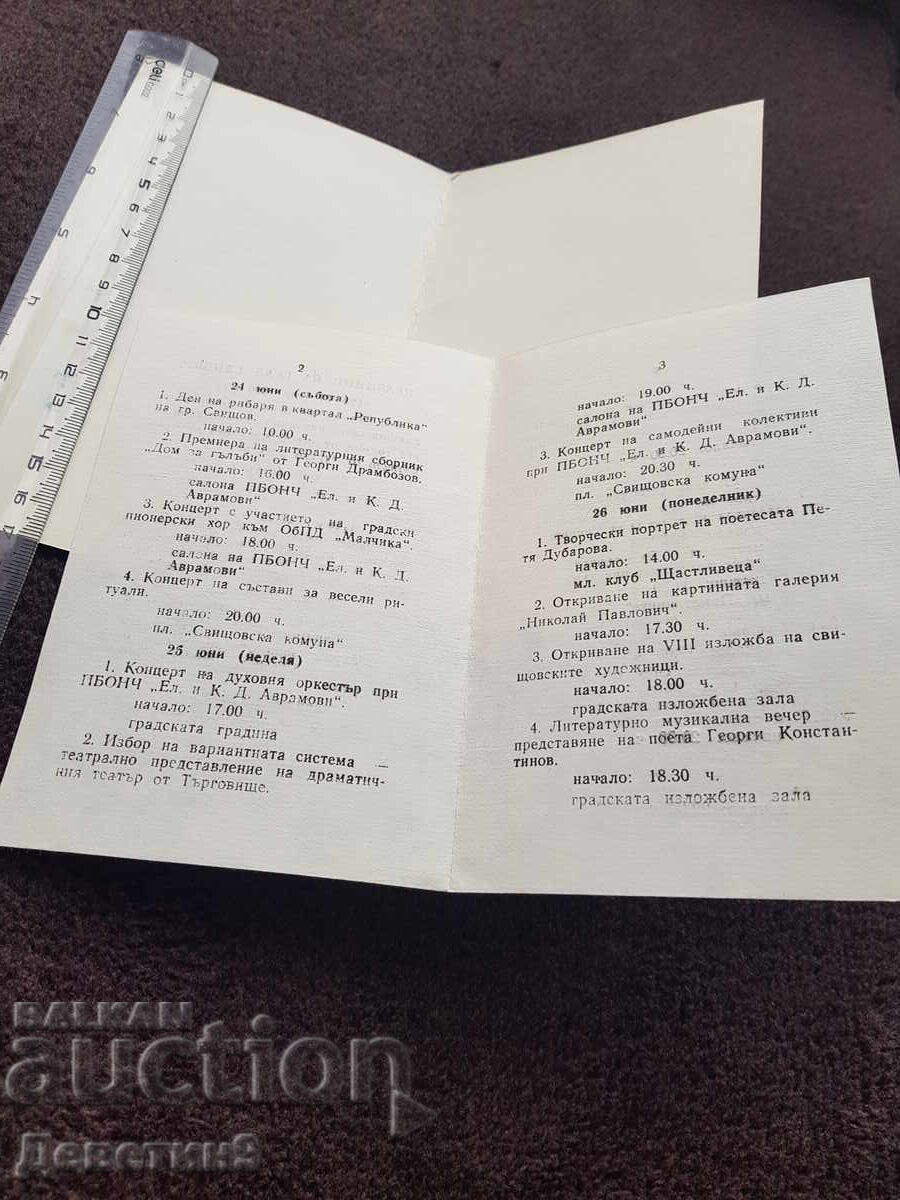 2
24 юни (събота)
1. Ден на рибаря в квартал „Република“
на гр. Свищов.
начало: 10.00 ч.
2. Премиера на литературния сборник
„Дом за гълъби“ от Георги Драмбозов.
начало: 16.00 ч.
салона ПБОНЧ „Ел. и К. Д.
Аврамови“
3. Концерт с участието на градски
пионерски хор към ОбПД „Малчика“.
начало: 18.00 ч.
салона на ПБОНЧ „Ел. и К. Д.
Аврамови“
4. Концерт на състави за весели ри-
туали.
начало: 20.00 ч.
пл. „Свищовска комуна“
25 юни (неделя)
1. Концерт на духовия оркестър при
ПБОНЧ „Ел. и К. Д. Аврамови“.
начало: 17.00 ч.
градската градина
2. Избор на вариантната система —
театрално представление на драматич-
ния театър от Търговище.
3
начало: 19.00 ч.
салона на ПБОНЧ „Ел. и К. Д.
Аврамови“
3. Концерт на самодейни колективи
при ПБОНЧ „Ел. и К. Д. Аврамови“.
начало: 20.30 ч.
пл. „Свищовска комуна“
26 юни (понеделник)
1. Творчески портрет на поетесата Пе-
тя Дубарова.
начало: 14.00 ч.
мл. клуб „Щастливеца“
2. Откриване на картинната галерия
„Николай Павлович“.
начало: 17.30 ч.
3. Откриване на VIII изложба на сви-
щовските художници.
начало: 18.00 ч.
градската изложбена зала
4. Литературно музикална вечер —
представяне на поета Георги Констан-
тинов.
начало: 18.30 ч.
градската изложбена зала
deli
0 1 2 3 4 5 6 7 8 9 10 11 12 13 14 15 16
BALKAN
auction
Деветин9